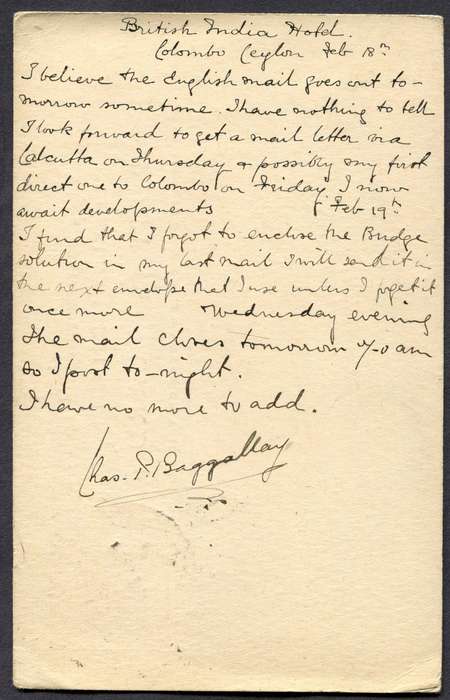 British India Hotel.
Colombo Ceylon Feb 18th
I believe the English mail goes out to-
morrow sometime. I have nothing to tell
I look forward to get a mail letter via
Calcutta on Thursday & possibly my first
direct one to Colombo on Friday I now
await developments ( Feb 19th
I find that I forgot to enclose the Bridge
solution in my last mail I will send it in
the next envelope that I use unless I forget it
once more Wednesday evening
The mail closes tomorrow 7-0 am
so I post to-night.
I have no more to add.
Chas. P. Baggallay